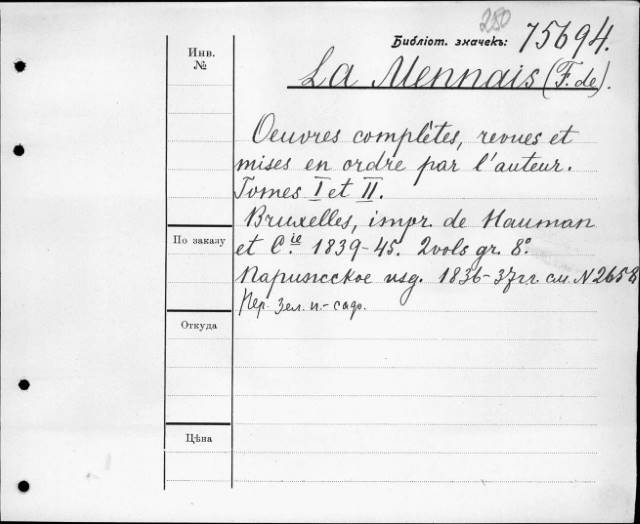 250
Библіот. значекъ: 75694.
Инв.
№
La Mennais (F. de).
Oeuvres complêtes, revues et
mises en ordre par l'auteur.
Tomes I et II.
Bruxelles, impr. de Hauman
По заказу
et C.ie 1839-45. 2 vols gr. 8°.
Парижское изд. 1836-37 гг. см. N 2658
Пер. Зел. п.-садо.
Откуда
Цѣна